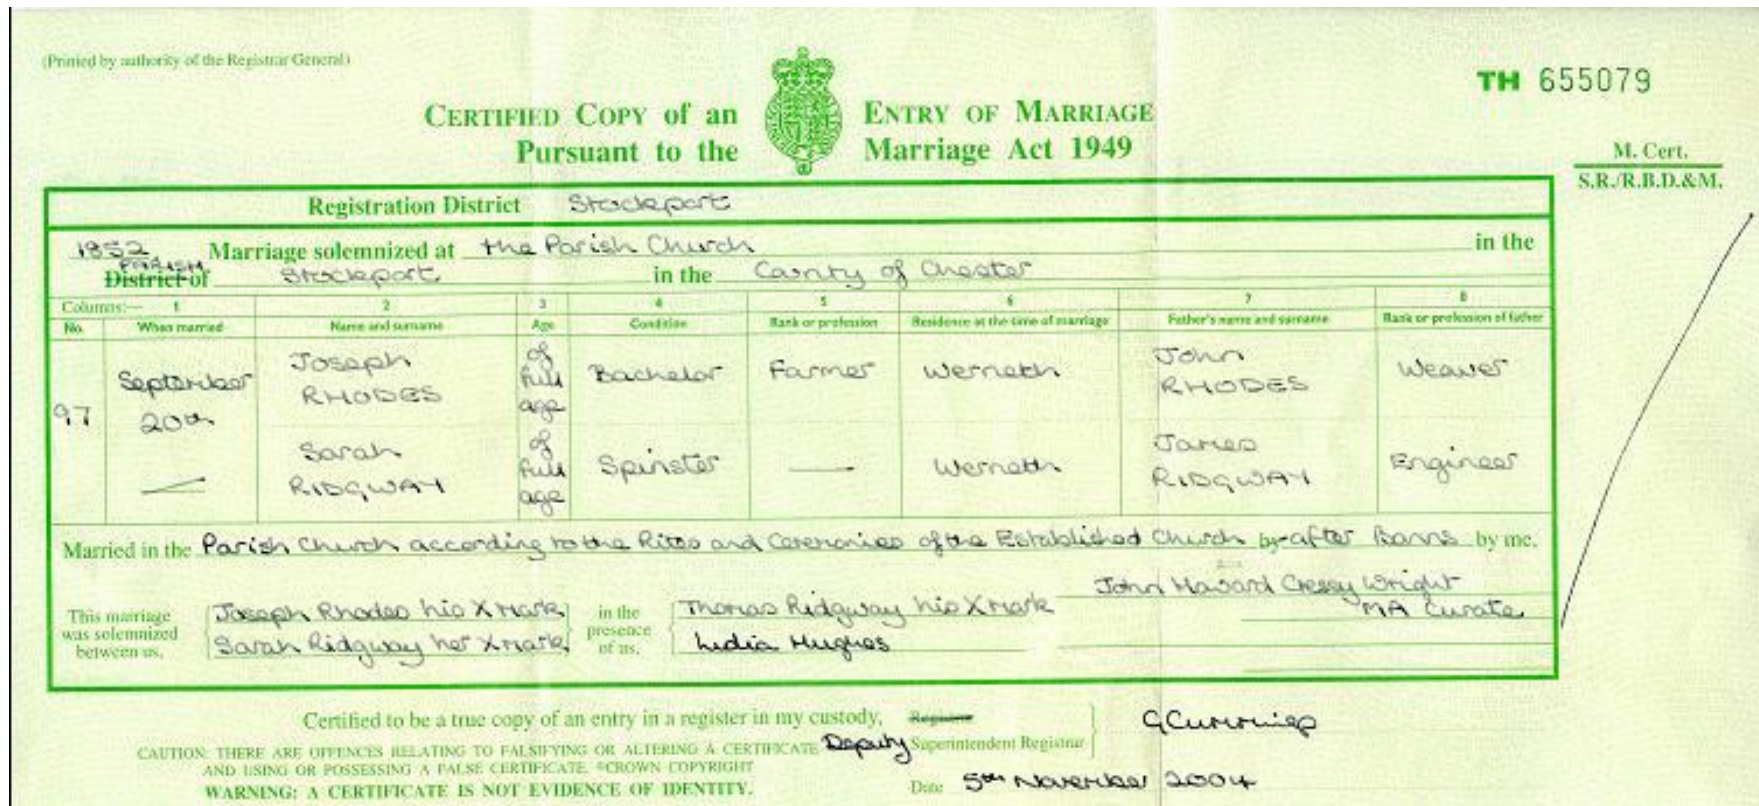 (Printed by authority of the Registrar General)
TH 655079
CERTIFIED COPY of an ENTRY OF MARRIAGE
Pursuant to the Marriage Act 1949
M. Cert.
S.R./R.B.D.&M.
Registration District Stockport
1852 Marriage solemnized at the Parish Church in the
District PARISH of Stockport in the County of Chester
Columns:— 1 2 3 4 5 6 7 8
No. When married Name and surname Age Condition Rank or profession Residence at the time of marriage Father's name and surname Rank or profession of father
97 September 20th Joseph RHODES of full age Bachelor Farmer Werneth John RHODES Weaver
— Sarah RIDGWAY of full age Spinster — Werneth James RIDGWAY Engineer
Married in the Parish Church according to the Rites and Ceremonies of the Established Church by after Banns by me,
John Havard Cressy Wright
MA Curate
This marriage was solemnized between us, Joseph Rhodes his X Mark
Sarah Ridgway her X Mark
in the presence of us, Thomas Ridgway his X Mark
Lydia Hughes
Certified to be a true copy of an entry in a register in my custody, Registrar
Deputy Superintendent Registrar
G Cummings
CAUTION: THERE ARE OFFENCES RELATING TO FALSIFYING OR ALTERING A CERTIFICATE
AND USING OR POSSESSING A FALSE CERTIFICATE. ©CROWN COPYRIGHT
WARNING: A CERTIFICATE IS NOT EVIDENCE OF IDENTITY.
Date 5th November 2004